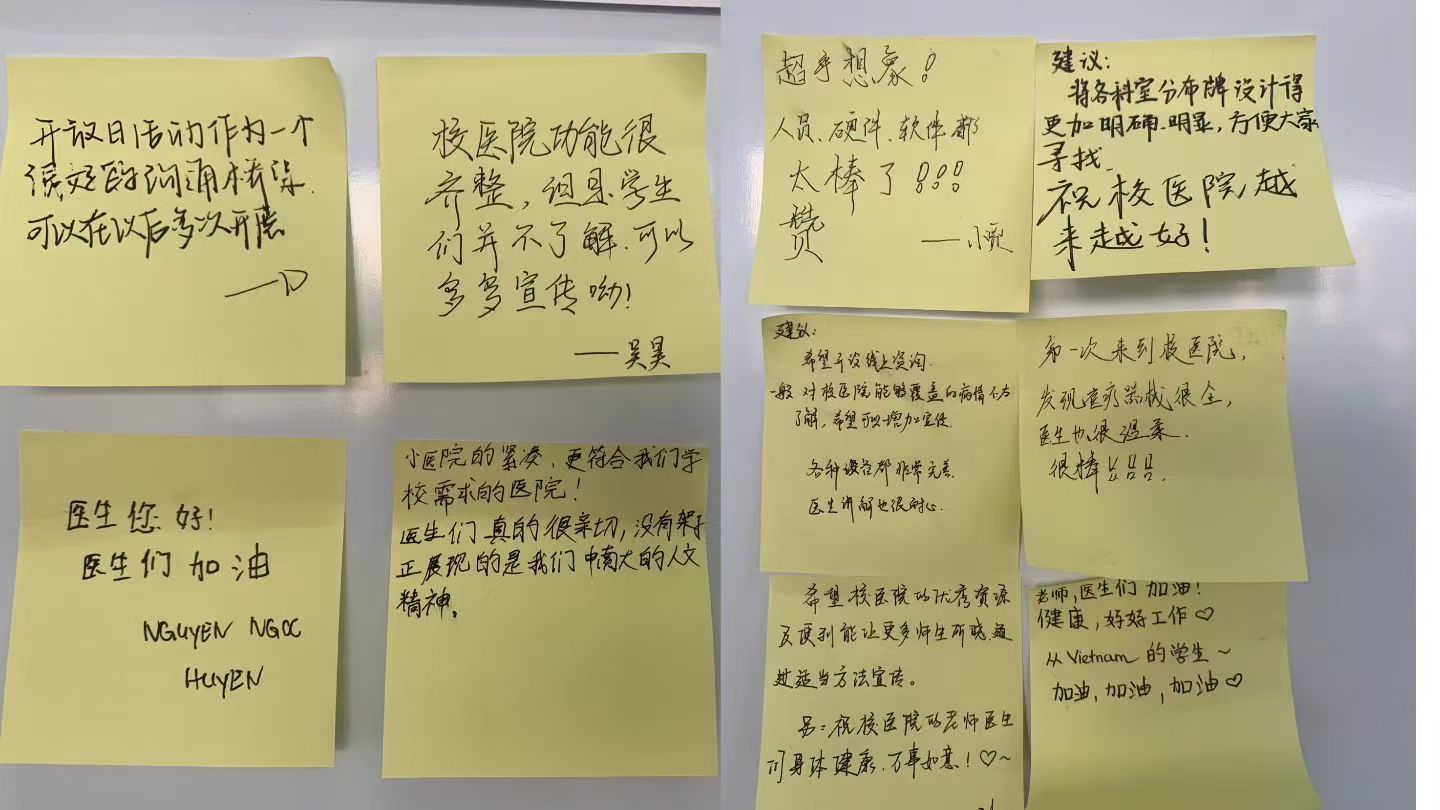 开放日活动作为一个
很好的沟通桥梁.
可以在以后多次开展
——D
校医院功能很
齐整，但是学生
们并不了解.可以
多多宣传呦!
——吴昊
医生您好!
医生们加油
NGUYEN NGOC
HUYEN
小医院的紧凑，更符合我们学
校需求的医院!
医生们真的很亲切,没有架子
正展现的是我们中南大的人文
精神。
超乎想象!
人员、硬件、软件都
太棒了!!!
赞
——小贾
建议:
将各科室分布牌设计得
更加明确、明显,方便大家
寻找.
祝校医院越
来越好!
建议:
希望开设线上咨询.
一般对校医院能够覆盖的病情不太
了解,希望可以增加宣传.
各种设备都非常完善.
医生讲解也很耐心.
第一次来到校医院,
发现医疗器械很全,
医生也很温柔.
很棒
希望校医院的优秀资源
及便利能让更多师生所晓.通
过适当方法宣传。
另:祝校医院的老师医生
们身体健康.万事如意!♡~
老师,医生们加油!
健康,好好工作♡
从Vietnam的学生~
加油,加油,加油♡